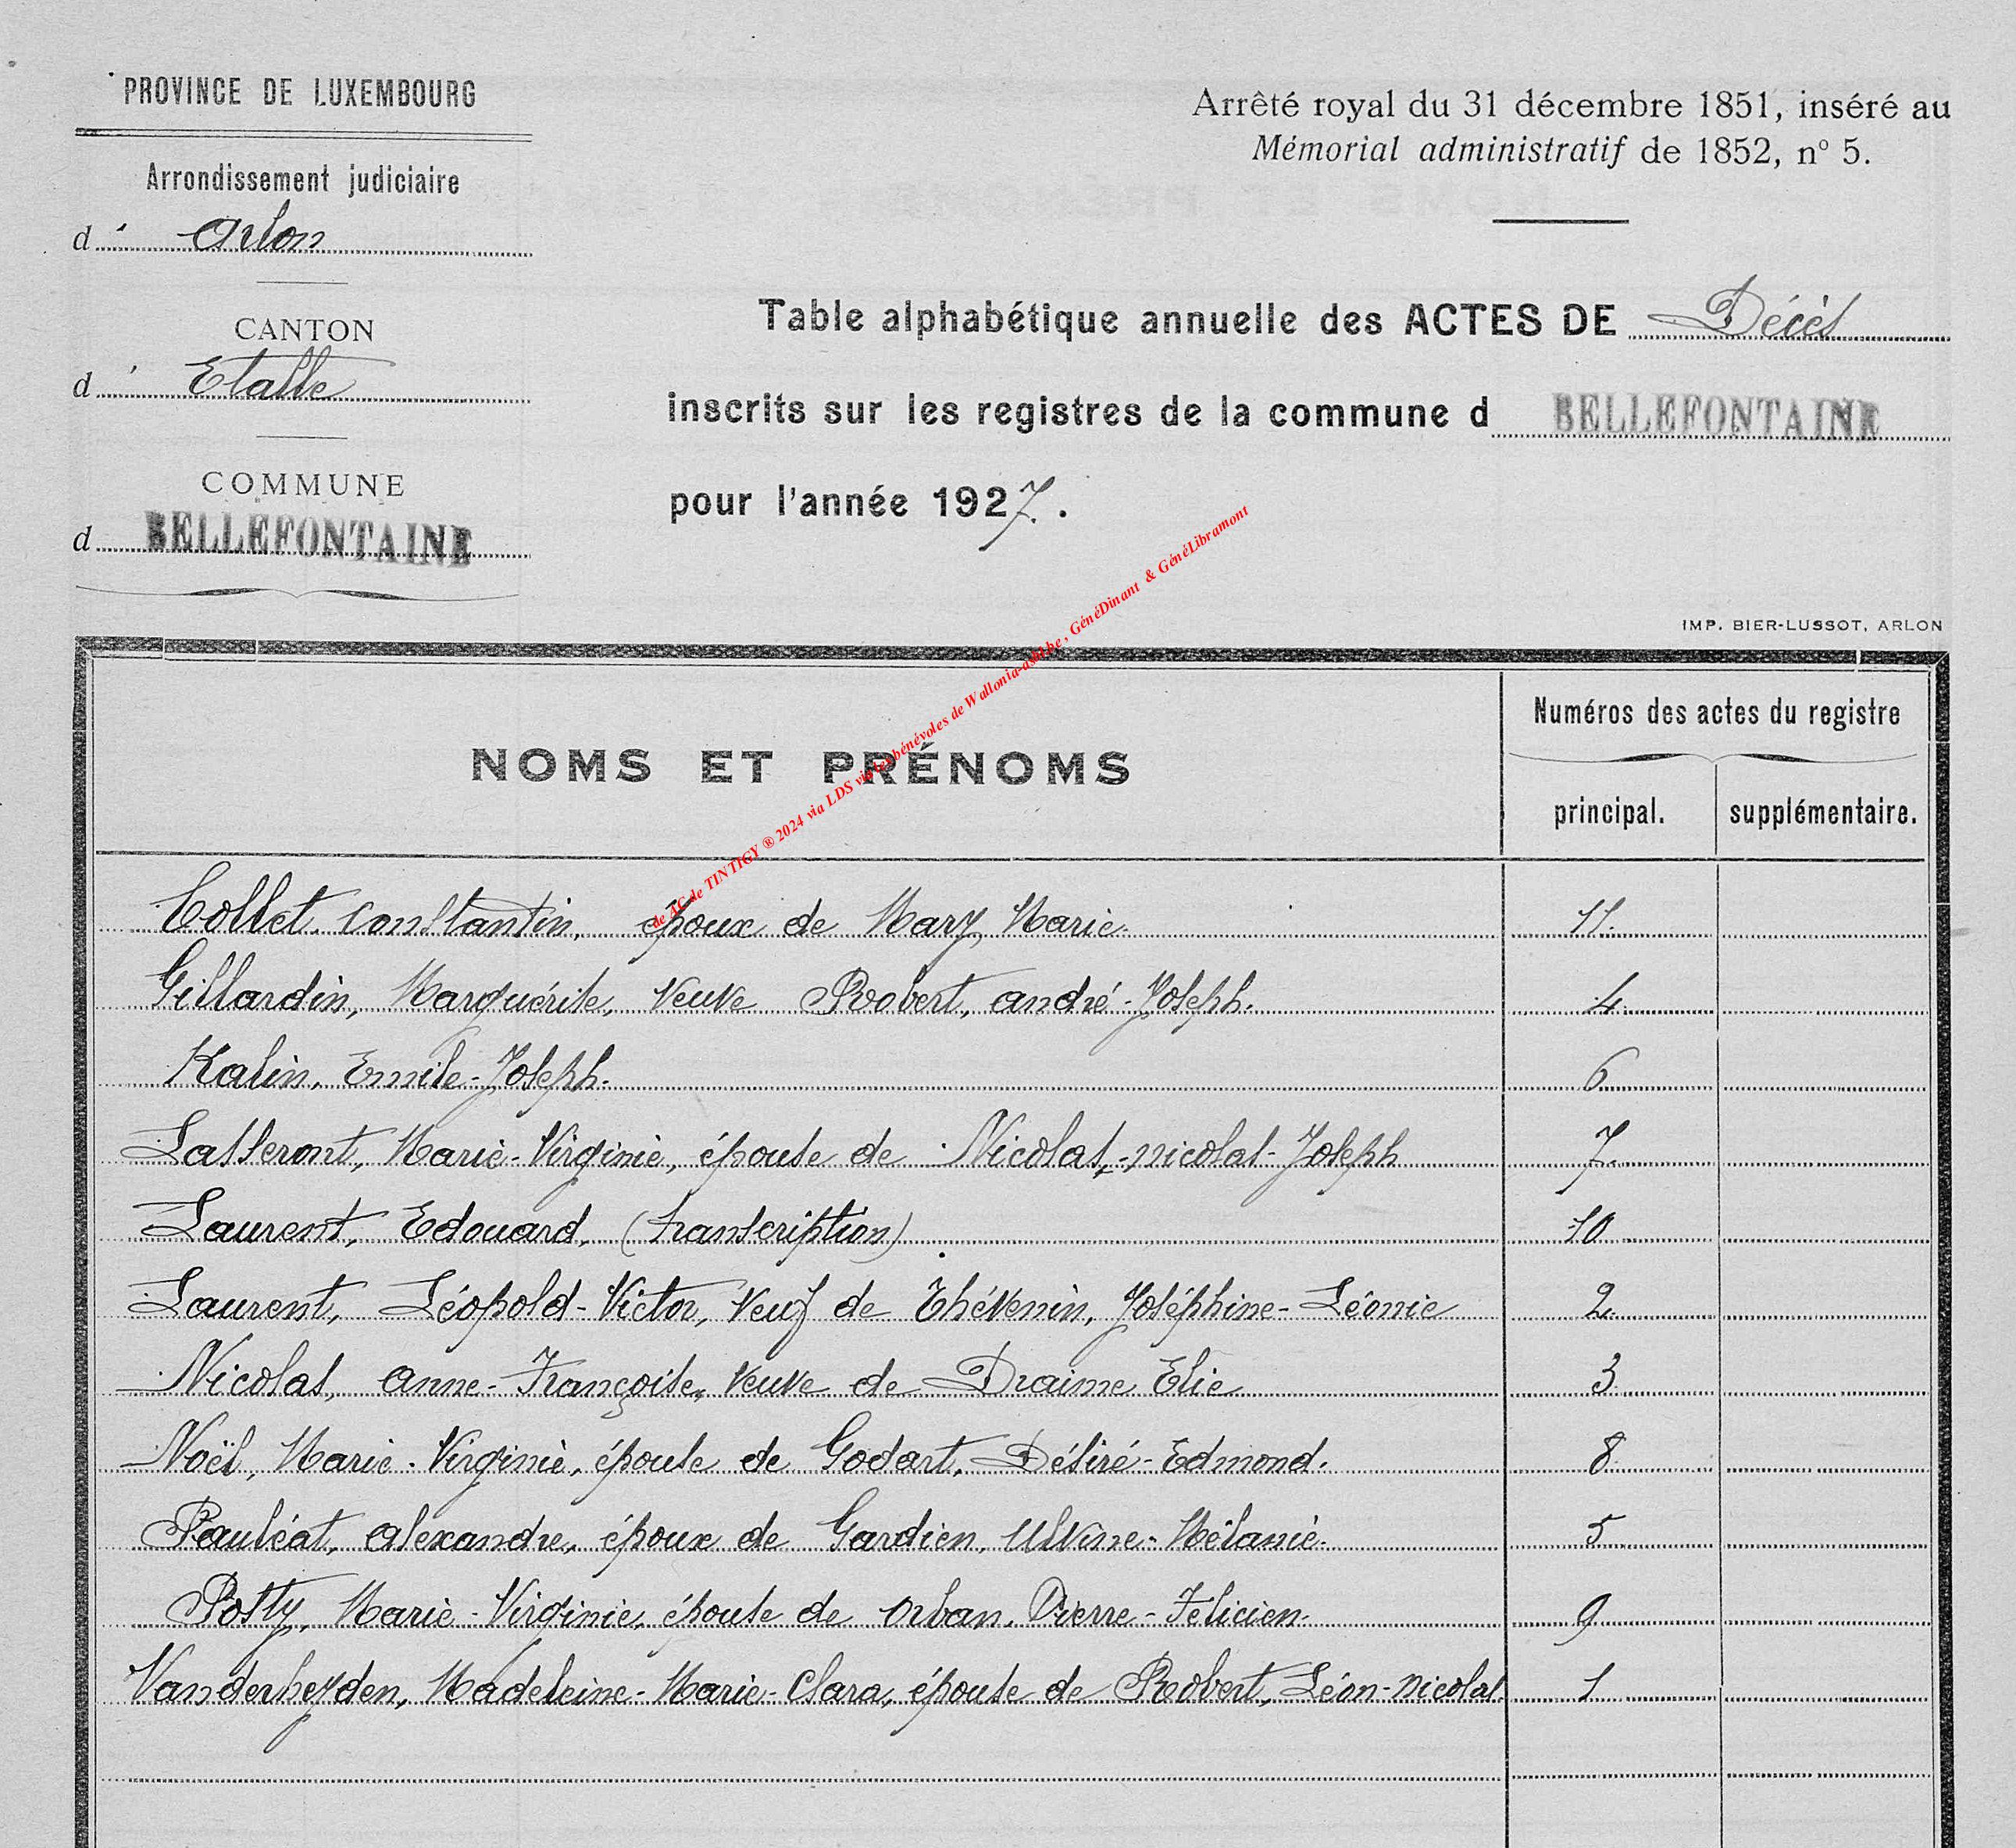 PROVINCE DE LUXEMBOURG
Arrondissement judiciaire
d' Arlon
CANTON
d' Etalle
COMMUNE
d BELLEFONTAINE
Arrêté royal du 31 décembre 1851, inséré au
Mémorial administratif de 1852, n° 5.
Table alphabétique annuelle des ACTES DE Décès
inscrits sur les registres de la commune d BELLEFONTAINE
pour l'année 1927.
IMP. BIER-LUSSOT, ARLON
de AC de TINTIGY ® 2024 via LDS via les bénévoles de Wallonia-asbl.be, GénéDinant & GénéLibramont
NOMS ET PRÉNOMS
Numéros des actes du registre
principal. supplémentaire.
Collet, Constantin, époux de Mary, Marie. 11.
Gillardin, Marguérite, veuve Robert, André-Joseph. 4.
Kalin, Emile-Joseph. 6.
Lasseront, Marie-Virginie, épouse de Nicolas,-Nicolas-Joseph 7.
Laurent, Edouard, (transcription) 10
Laurent, Léopold-Victor, veuf de Thévenin, Joséphine-Léonie 2.
Nicolas, Anne-Françoise, veuve de Draime Elie 3.
Noël, Marie-Virginie, épouse de Godart, Désiré-Edmond. 8.
Pauléat, Alexandre, époux de Gardien, Ulvine-Mélanie. 5
Posty, Marie-Virginie, épouse de Orban, Pierre-Felicien. 9
Vanderheyden, Madeleine-Marie-Clara, épouse de Robert, Léon-Nicolas. 1